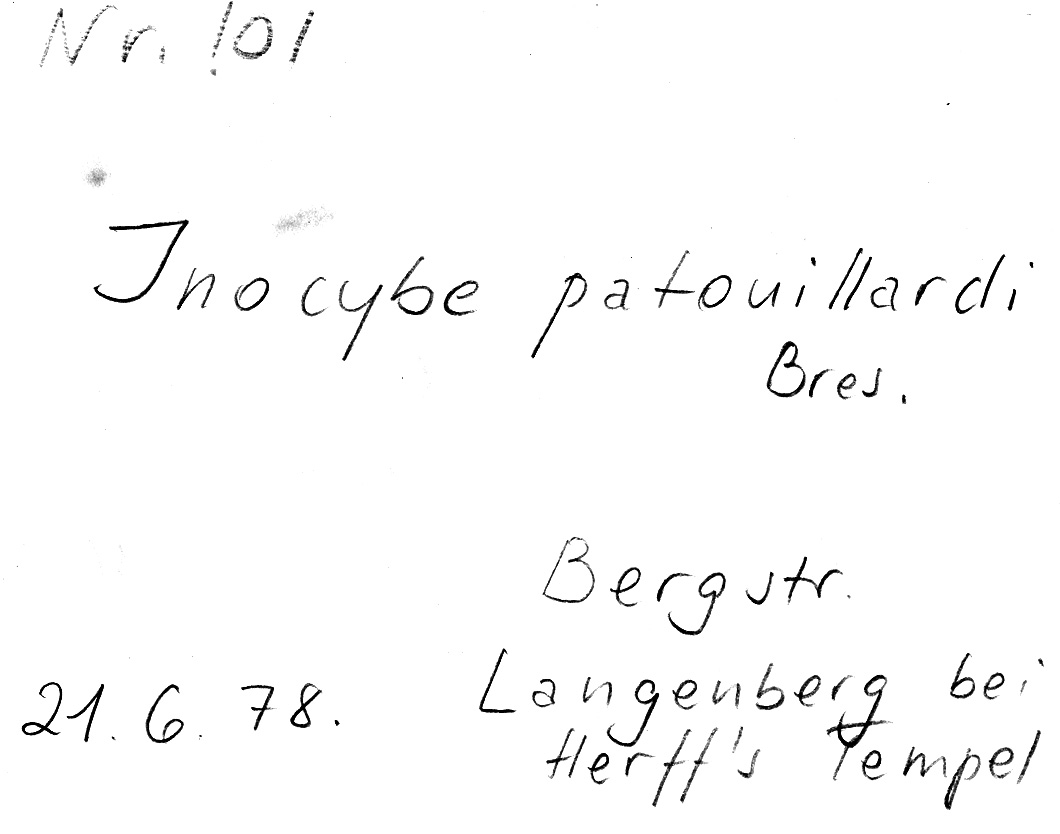 Nr. 101
Inocybe patouillardi
Bres.
Bergstr.
Langenberg bei
21. 6. 78.
Herff's Tempel